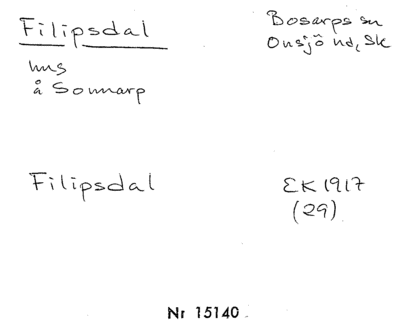 Filipsdal
Bosarps sn
Onsjö hd, Sk
hus
å Sonnarp
Filipsdal
EK 1917
(29)
Nr 15140